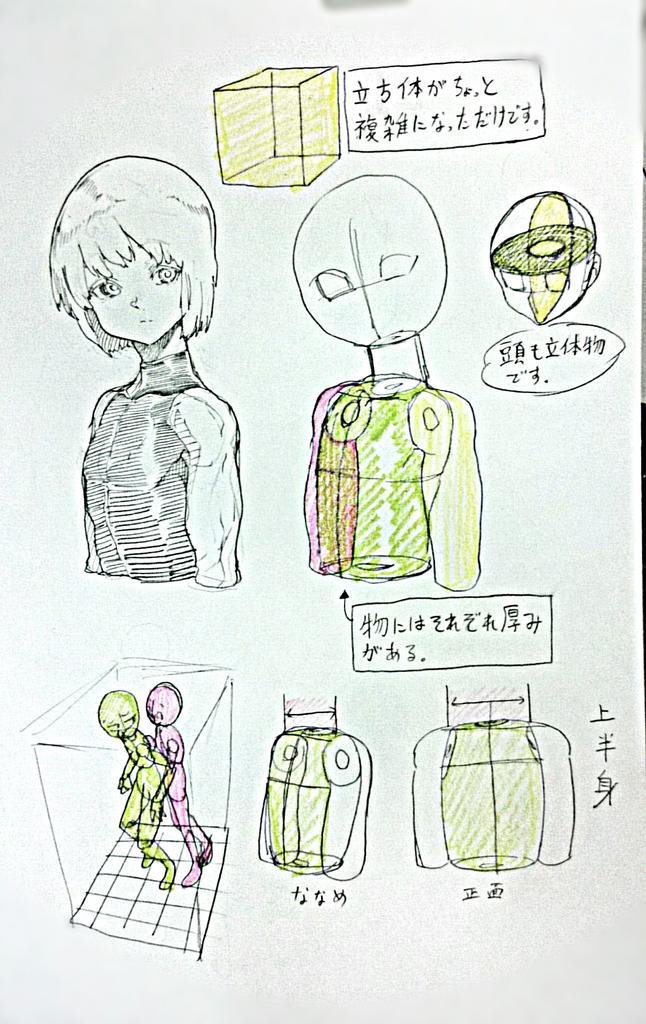 立ち体がちょっと
複雑になっただけです。
頭も立体物
です。
物にはそれぞれ厚み
がある。
上半身
ななめ
正面